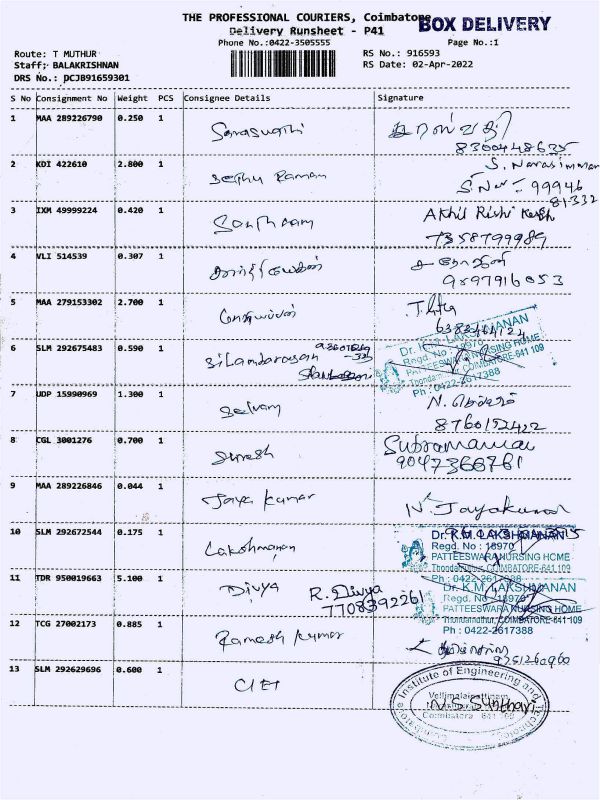 THE PROFESSIONAL COURIERS, Coimbatore
BOX DELIVERY
Delivery Runsheet - P41
Phone No.:0422-3505555
Page No.:1
Route: T MUTHUR
RS No.: 916593
Staff: BALAKRISHNAN
RS Date: 02-Apr-2022
DRS No.: DCJB91659301
S No Consignment No Weight PCS Consignee Details Signature
1 MAA 289226790 0.250 1 Saraswathi சரஸ்வதி
8300448635
2 KDI 422610 2.800 1 Sethu Raman S. Narasimman
99946
81332
3 IXM 49999224 0.420 1 Akhil Rishi
7358799989
4 VLI 514539 0.307 1 கார்த்திகேயன்
9897916053
5 MAA 279153302 2.700 1
6383464124
6 SLM 292675483 0.590 1 Silambarasan
Dr. K.M. LAKSHMANAN
Regd. No : 18970
PATTEESWARA NURSING HOME
Thondamuthur, COIMBATORE-641 109
Ph : 0422-2617388
7 UDP 15990969 1.300 1 Selvam N.
8760152422
8 CGL 3001276 0.700 1 Suresh Subramaniam
9047366761
9 MAA 289226846 0.044 1 Jaya kumar N. Jayakumar
10 SLM 292672544 0.175 1 Lakshmanan
Dr. K.M. LAKSHMANAN
Regd. No : 18970
PATTEESWARA NURSING HOME
Thondamuthur, COIMBATORE-641 109
Ph : 0422-2617388
11 TDR 950019663 5.100 1 Divya R. Divya
7708392261
Dr. K.M. LAKSHMANAN
Regd. No : 18970
PATTEESWARA NURSING HOME
Thondamuthur, COIMBATORE-641 109
Ph : 0422-2617388
12 TCG 27002173 0.885 1 Ramesh Kumar
9751260960
13 SLM 292629696 0.600 1 CIET
Coimbatore Institute of Engineering and Technology
Vellimalaipattinam
Coimbatore 641 109